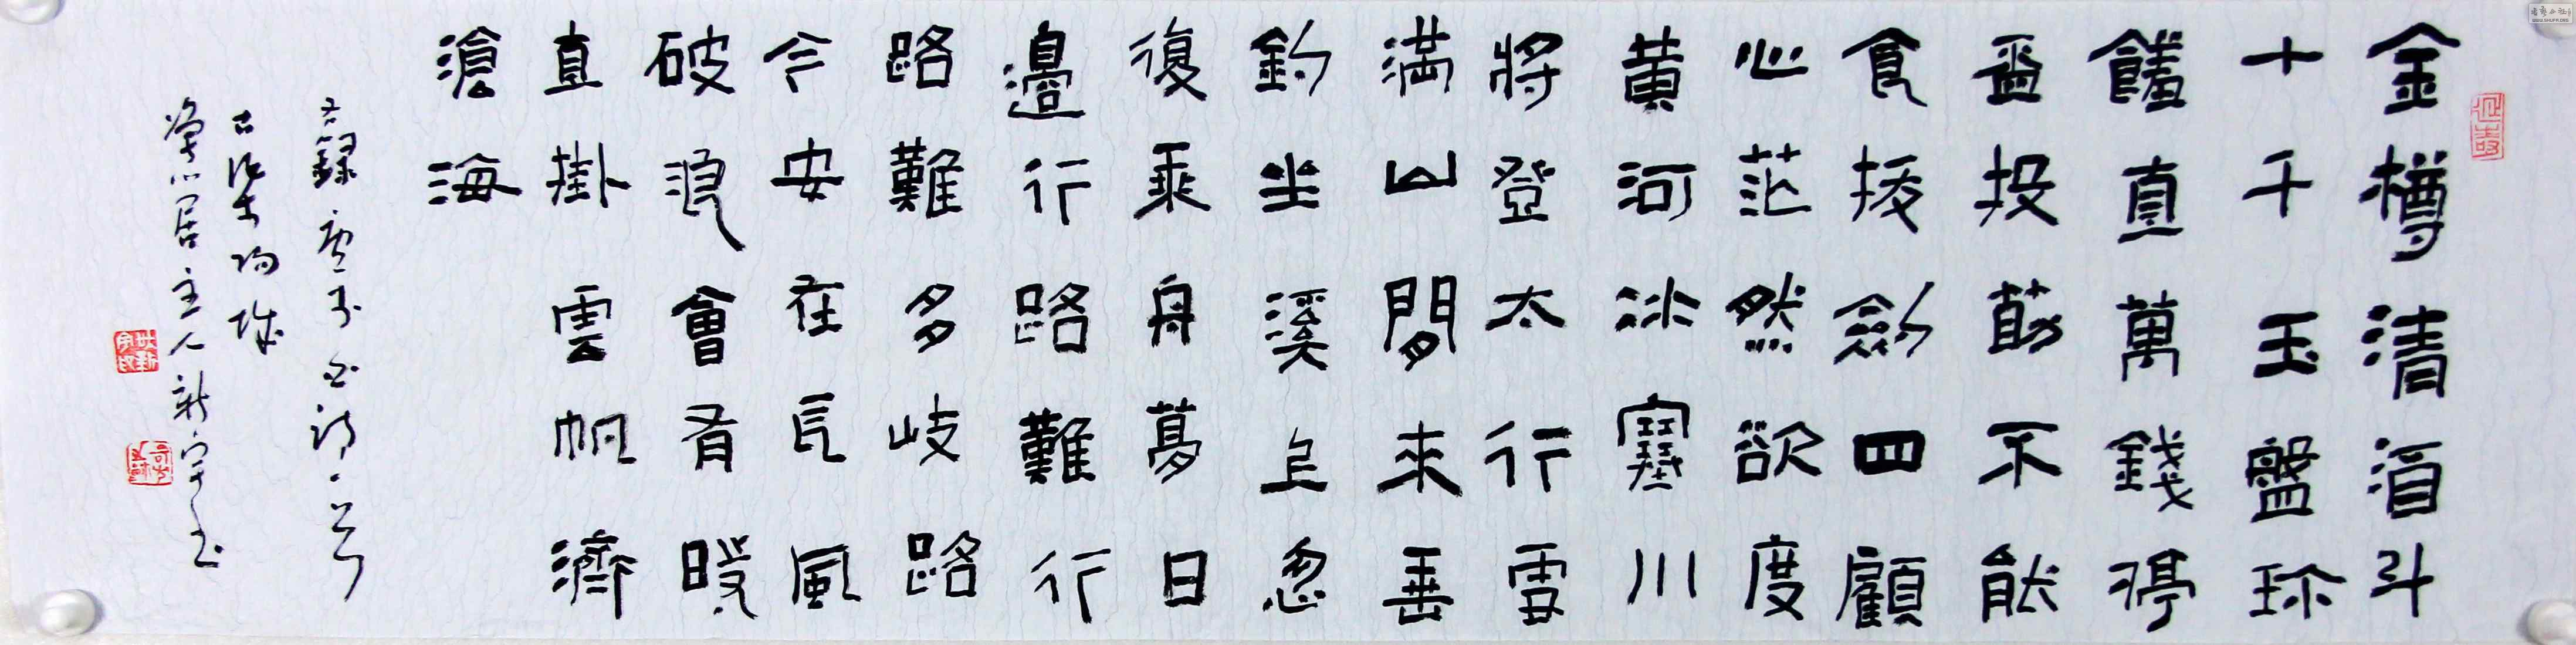 金樽清酒斗
十千玉盤珎
饈直萬錢停
盃投筯不能
食拔劍四顧
心茫然欲度
黃河冰塞川
將登太行雪
滿山閒來垂
釣坐溪上忽
復乘舟夢日
邊行路難行
路難多岐路
今安在長風
破浪會有時
直掛雲帆濟
滄海
右錄唐李白詩一首
居主人新宇書